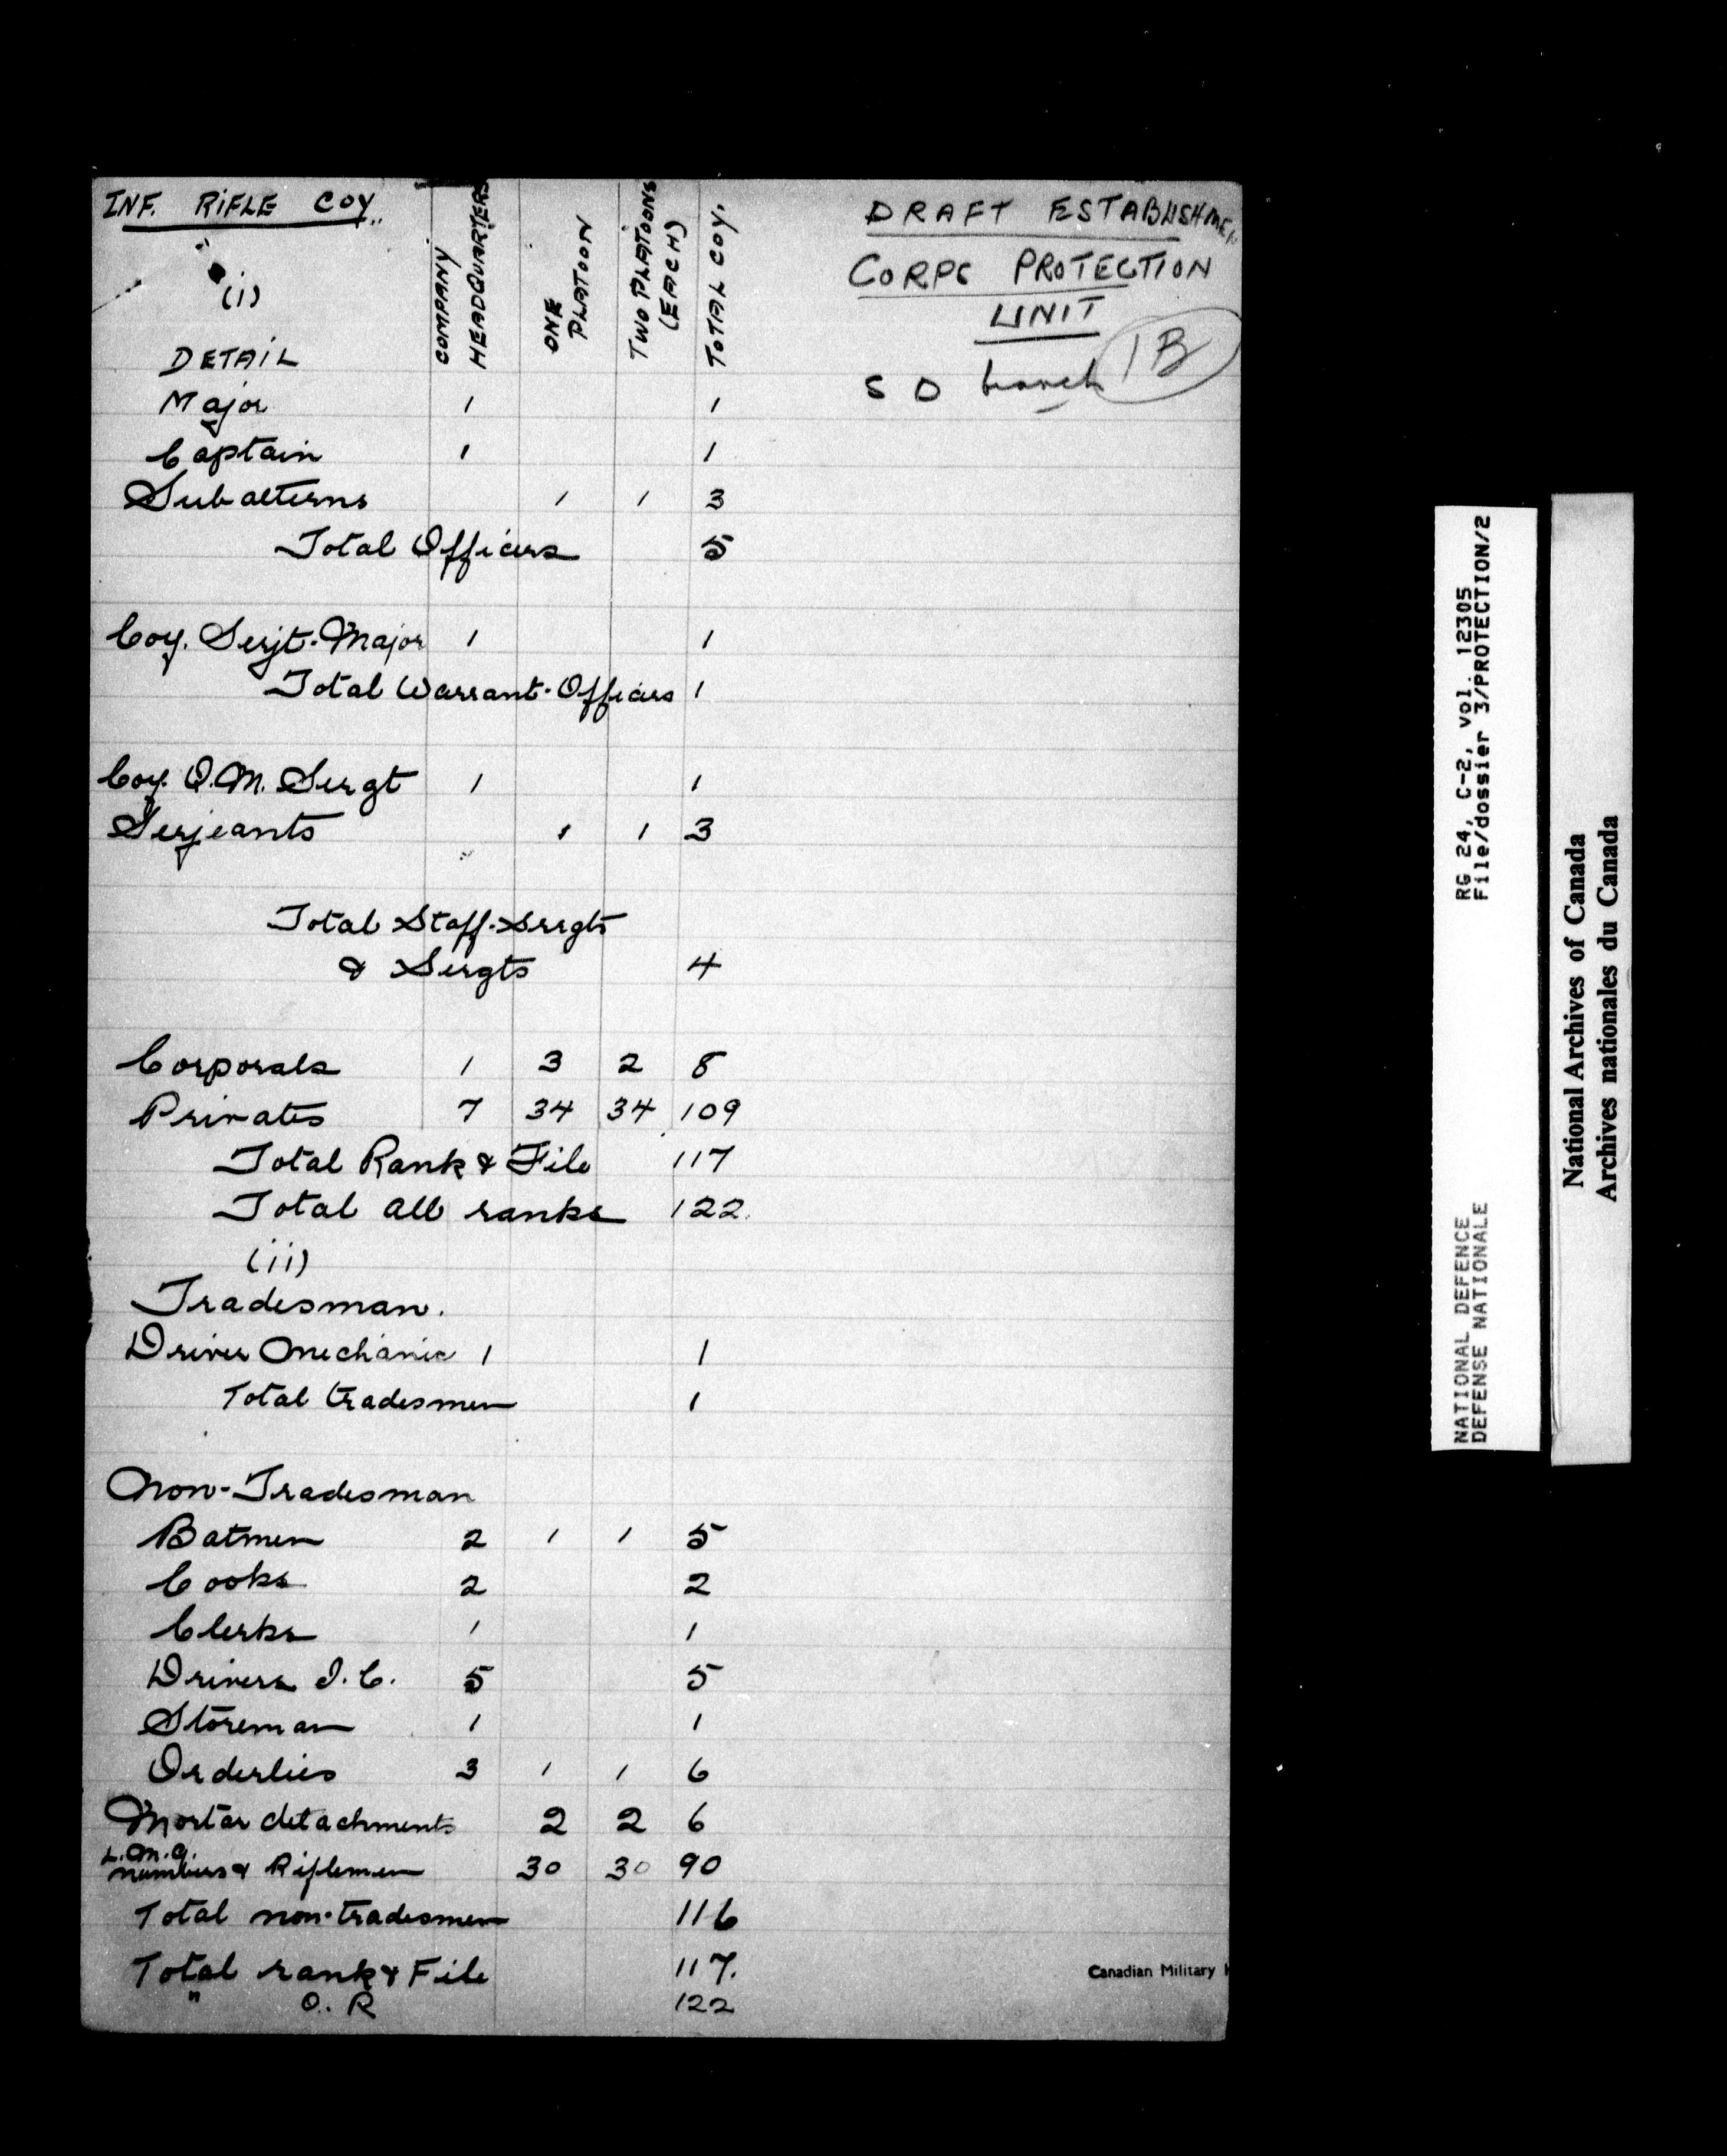 INF. RIFLE COY.
(i)
DETAIL
COMPANY HEADQUARTERS
ONE PLATOON
TWO PLATOONS (EACH)
TOTAL COY.
DRAFT ESTABLISHMEN
CORPS PROTECTION
UNIT
1B
S D branch
Major 1 1
Captain 1 1
Subalterns 1 1 3
Total Officers 5
Coy. Serjt-Major 1 1
Total Warrant-Officers 1
Coy. Q.M. Sergt 1 1
Serjeants 1 1 3
Total Staff-Sergts
& Sergts 4
Corporals 1 3 2 8
Privates 7 34 34 109
Total Rank & File 117
Total all ranks 122.
(ii)
Tradesman.
Driver Mechanic 1 1
Total tradesmen 1
Non-Tradesman
Batmen 2 1 1 5
Cooks 2 2
Clerks 1 1
Drivers I.C. 5 5
Storeman 1 1
Orderlies 3 1 1 6
Mortar detachments 2 2 6
L.M.G.
numbers & Riflemen 30 30 90
Total non-tradesmen 116
Total rank & File 117.
" O.R 122
Canadian Military
RG 24, C-2, vol. 12305
File/dossier 3/PROTECTION/2
NATIONAL DEFENCE
DEFENSE NATIONALE
National Archives of Canada
Archives nationales du Canada